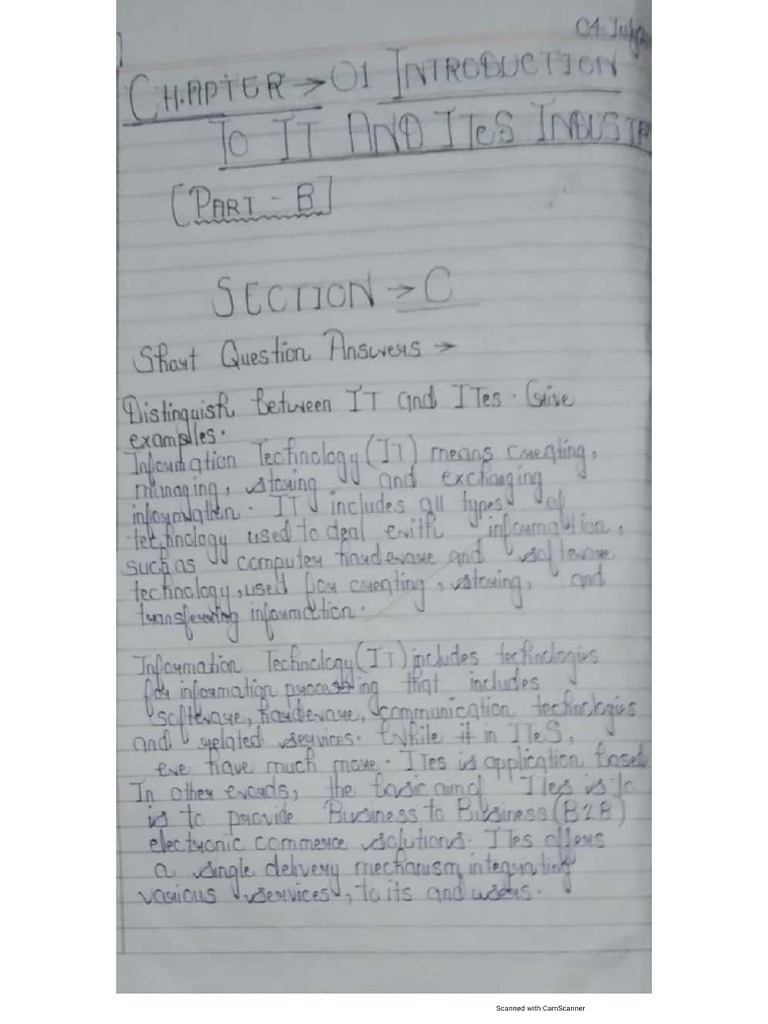 CHAPTER → 01 INTRODUCTION
TO IT AND ITeS INDUSTR
[PART - B]
SECTION → C
Short Question Answers →
Distinguish between IT and ITes. Give
examples.
Information Technology (IT) means creating,
managing, storing and exchanging
information. IT includes all types of
technology used to deal with information,
such as computer hardware and software
technology, used for creating, storing, and
transferring information.
Information Technology (IT) includes technologies
for information processing that includes
software, hardware, communication technologies
and related services. While it in ITeS,
we have much more. ITes is application based
In other words, the basic aim of ITes is to
is to provide Business to Business (B2B)
electronic commerce solutions. ITes offers
a single delivery mechanism, integrating
various services, to its end users.
Scanned with CamScanner